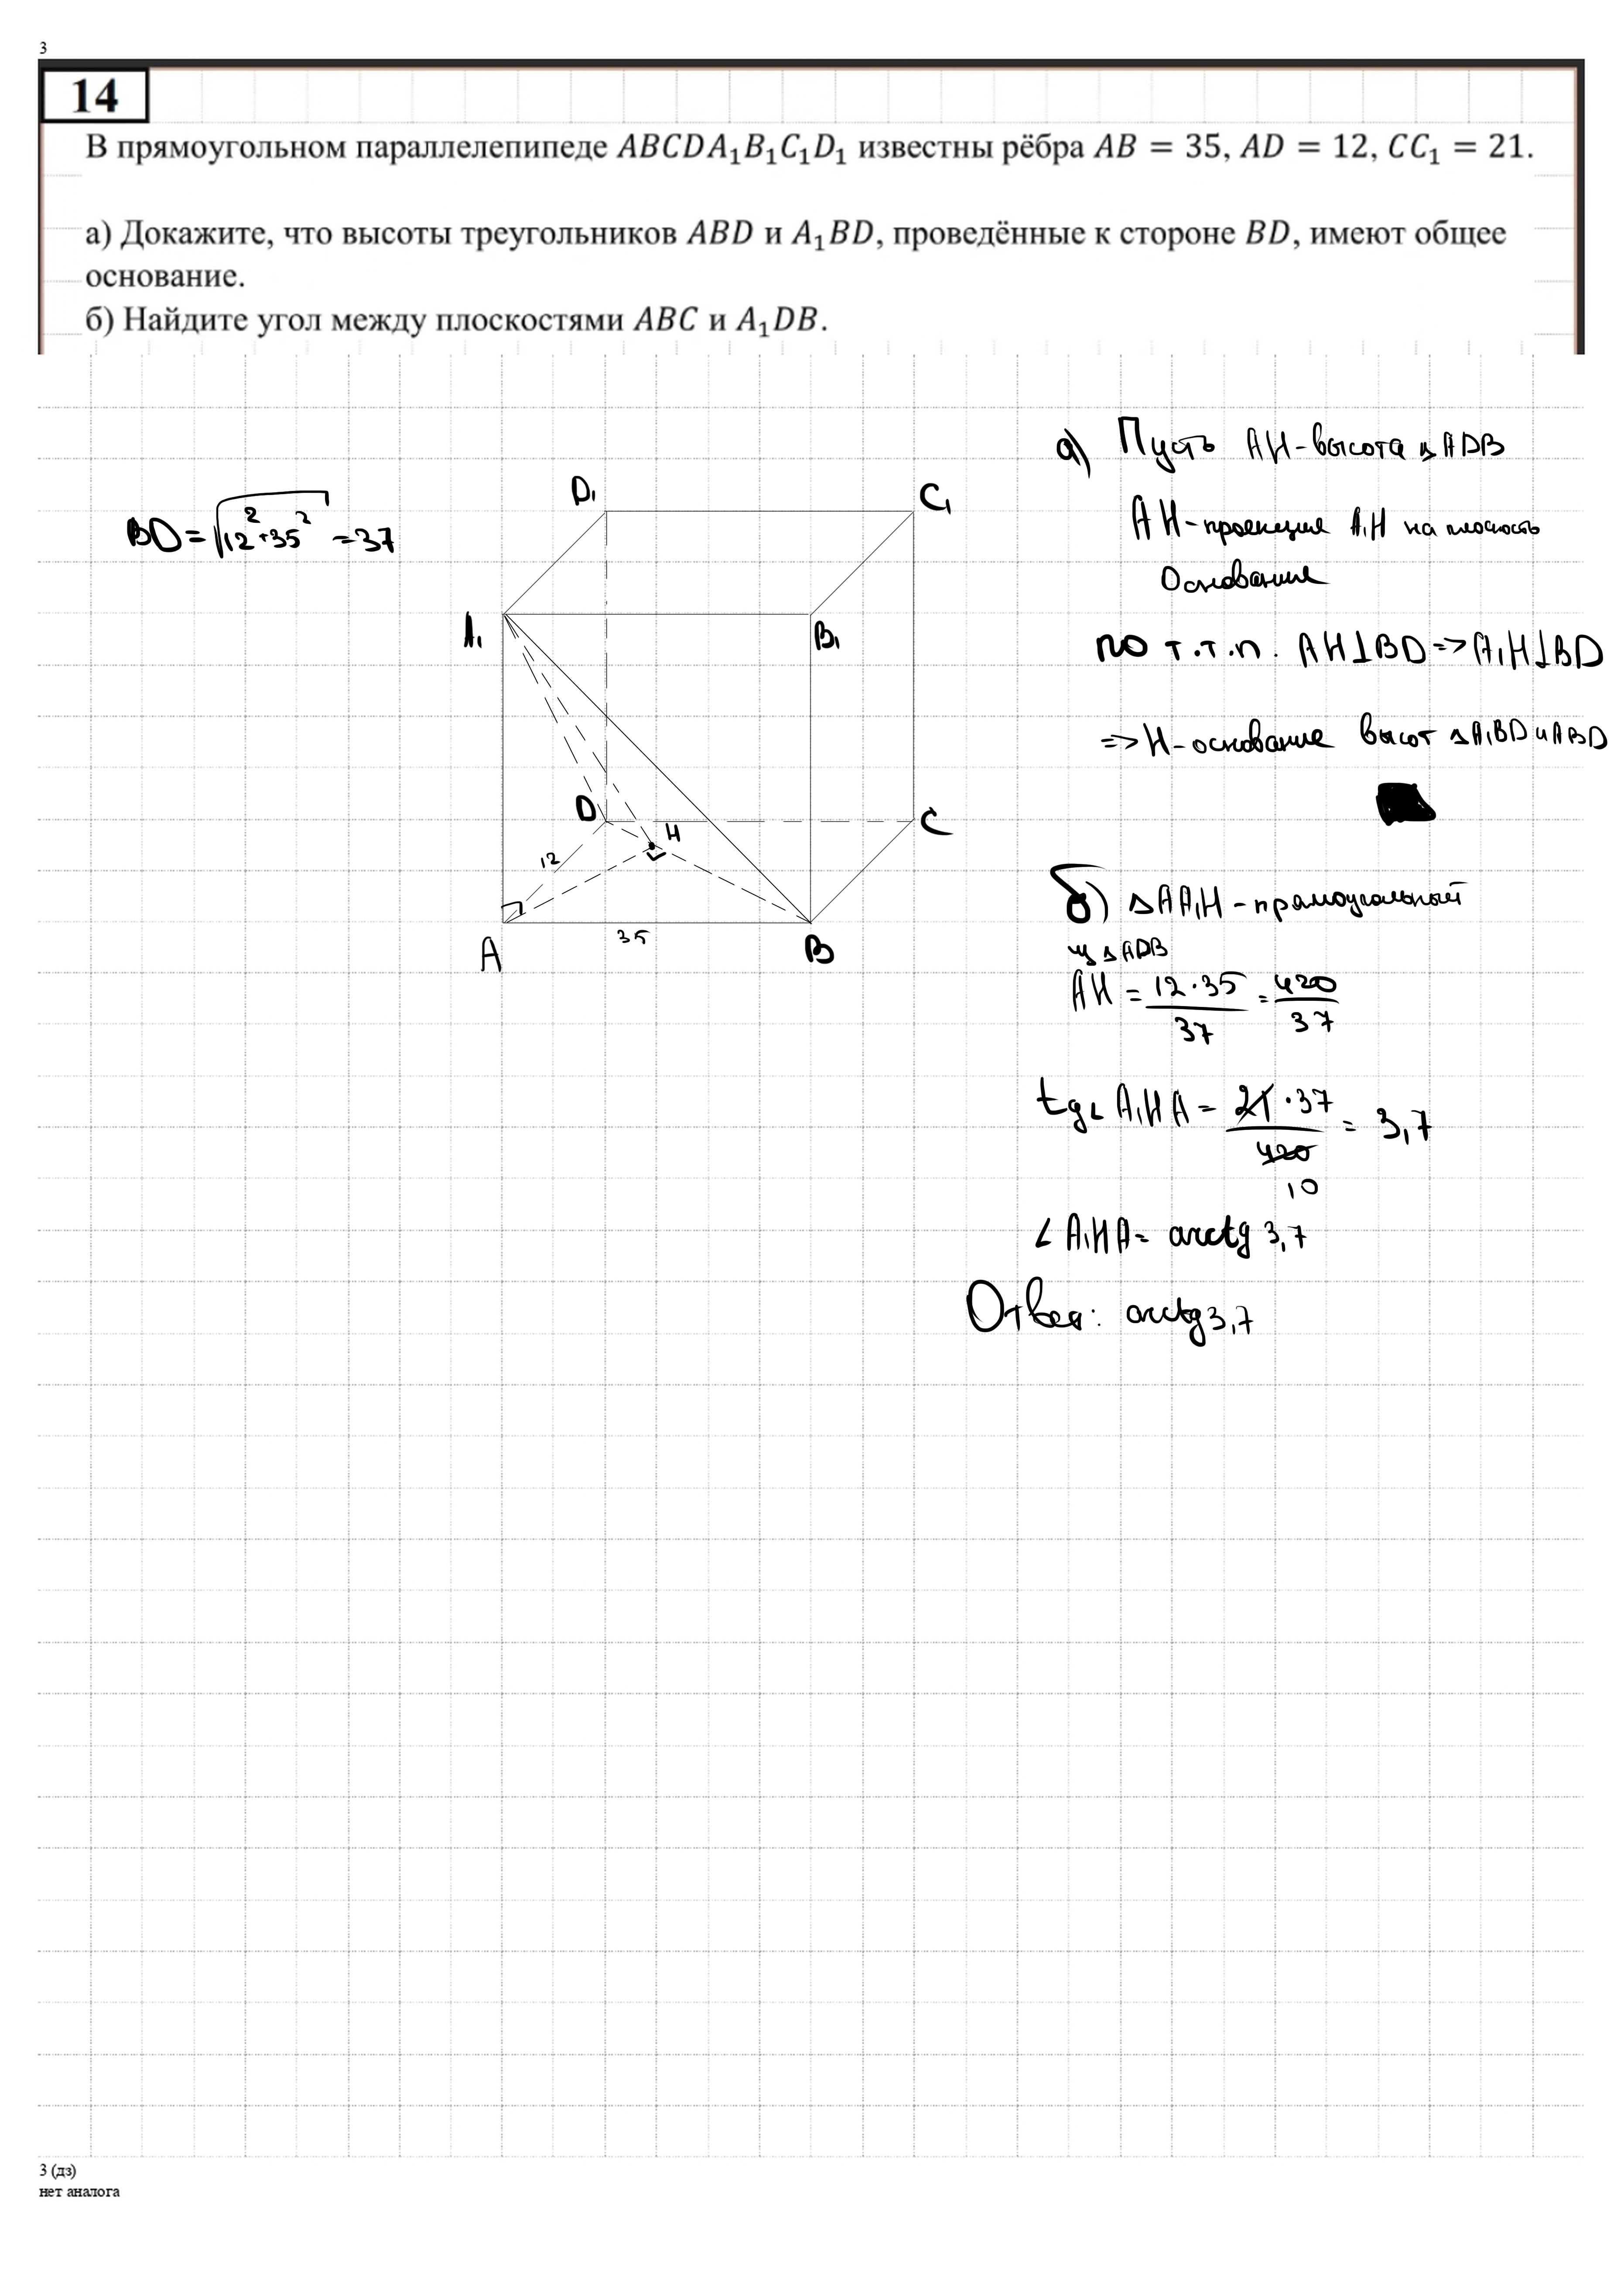 3
14
В прямоугольном параллелепипеде ABCDA₁B₁C₁D₁ известны рёбра AB = 35, AD = 12, CC₁ = 21.
а) Докажите, что высоты треугольников ABD и A₁BD, проведённые к стороне BD, имеют общее
основание.
б) Найдите угол между плоскостями ABC и A₁DB.
BD = √(12² + 35²) = 37
D₁
C₁
A₁
B₁
D
H
C
12
35
A
B
а) Пусть AH - высота △ADB
AH - проекция A₁H на плоскость
Основание
по т.т.п. AH⊥BD => A₁H⊥BD
=> H - основание высот △A₁BD и ABD
б) △AA₁H - прямоугольный
из △ADB
AH = 12·35/37 = 420/37
tg∠A₁HA = 21·37/420 = 3,7
10
∠A₁HA = arctg 3,7
Ответ: arctg 3,7
3 (дз)
нет аналога